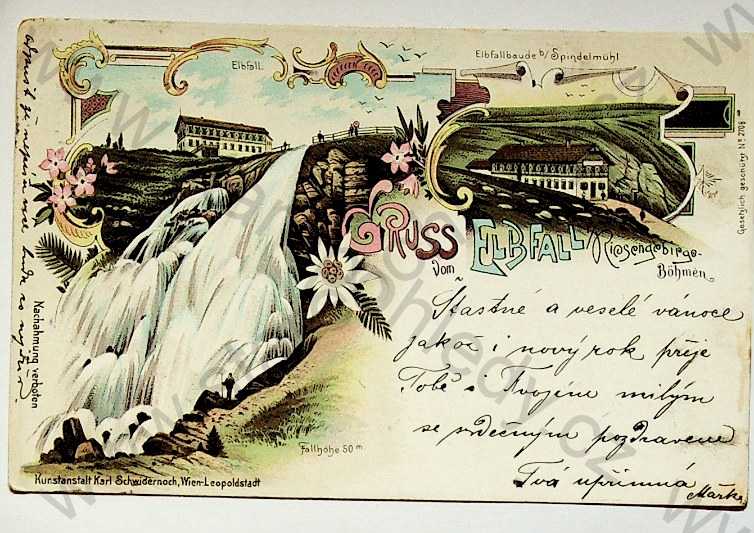 Elbfall.
Elbfallbaude b/ Spindelmühl
Gesetzlich geschützt No 2706
Gruss
vom
Elbfall/
Riesengebirge-
Böhmen.
Šťastné a veselé vánoce
jakož i nový rok přeje
Tobě i Tvojéne milým
se srdečným pozdravene
Tvá upřímná
Mařka
Nachahmung verboten
Fallhöhe 50 m
Kunstanstalt Karl Schwidernoch, Wien-Leopoldstadt